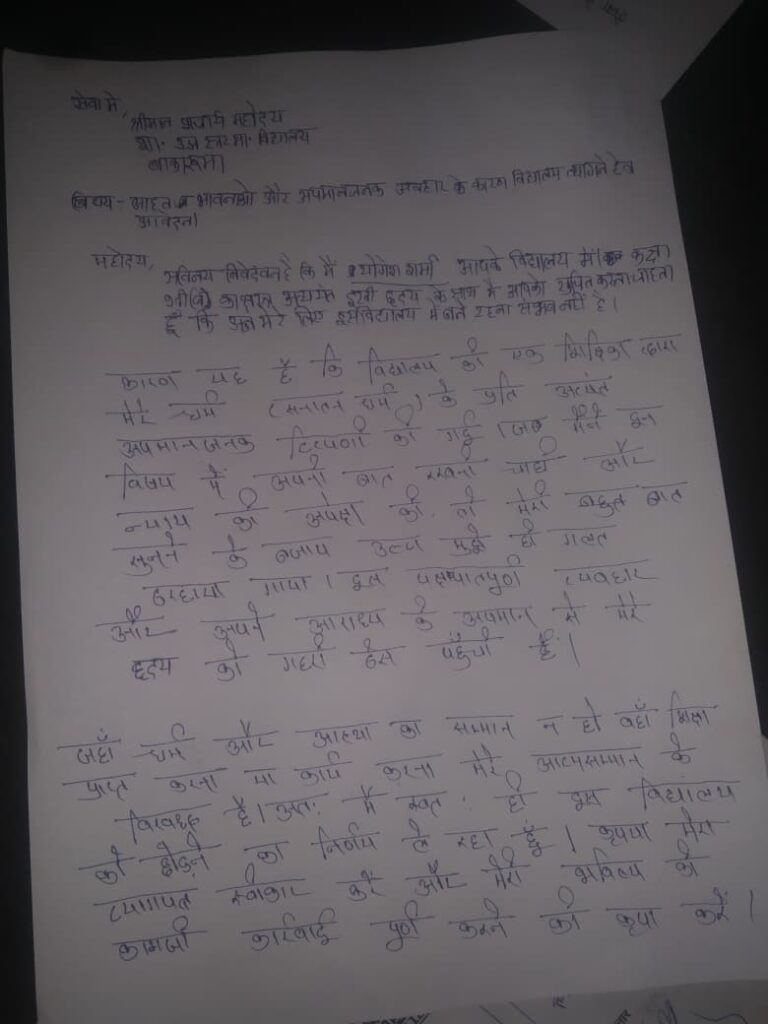 सेवा मे,
श्रीमान प्राचार्य महोदय
शा. उच्च मा. विद्यालय
बाकारूमा।
विषय - आहत भावनाओ और अपमानजनक व्यवहार के कारण विद्यालय त्यागने हेतु
आवेदन।
महोदय,
सविनय निवेदन है कि मैं योगेश शर्मा आपके विद्यालय में कक्षा
का छात्र अत्यंत दुखी हृदय के साथ मै आपको सूचित करना चाहता
हूँ कि अब मेरे लिए इस विद्यालय में बने रहना संभव नहीं है।
कारण यह है कि विद्यालय की एक शिक्षिका द्वारा
मेरे धर्म (सनातन धर्म) के प्रति अत्यंत
अपमानजनक टिप्पणी की गई। जब मैंने इस
विषय में अपनी बात रखनी चाही और
न्याय की अपेक्षा की, तो मेरी बात
सुनने के बजाय उल्टा मुझे ही गलत
ठहराया गया। इस पक्षपातपूर्ण व्यवहार
और अपने आराध्य के अपमान से मेरे
हृदय को गहरी ठेस पहुँची है।
जहाँ धर्म और आस्था का सम्मान न हो वहाँ शिक्षा
प्राप्त करना या कार्य करना मेरे आत्मसम्मान के
विरुद्ध है। अतः मैं स्वतः ही इस विद्यालय
को छोड़ने का निर्णय ले रहा हूँ। कृपया मेरा
त्यागपत्र स्वीकार करें और मेरी भविष्य की
कागजी कार्रवाई पूर्ण करने की कृपा करें।